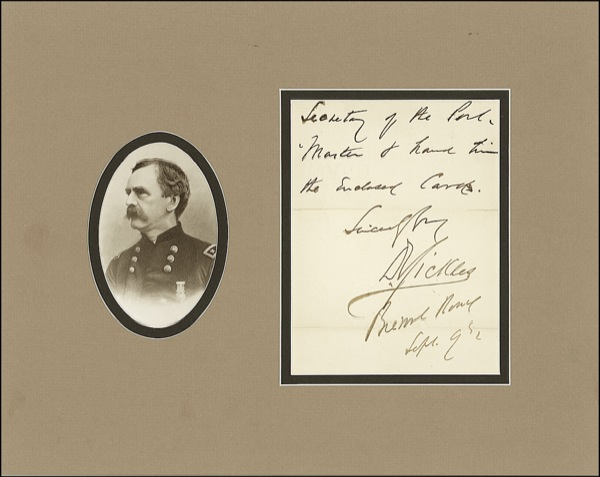 Secretary of the Post-
Master & hand him
the enclosed Cards.
Sincerely
D Sickles
Sept. 9th